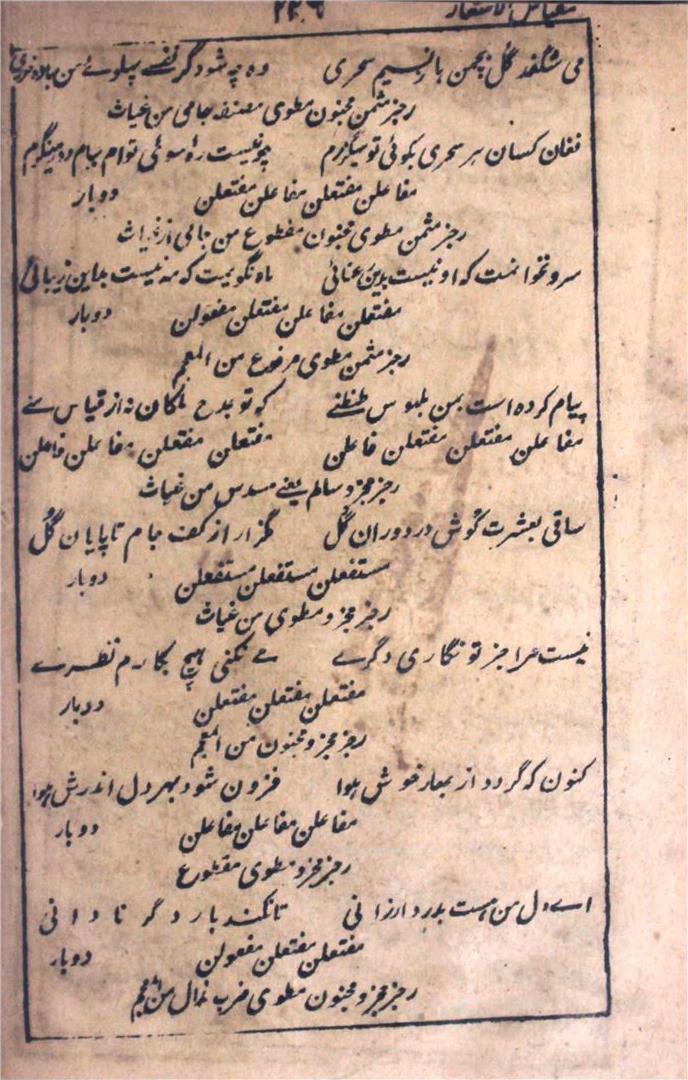 مقیاس الاشعار ۲۲۶
می شگفد گل بچمن باز نسیم سحری وه چه شود گر نفسے پهلوئے من باده خوری
رجز مثمن مخبون مطوی مصنفه جامی من غیاث
فغان کسان هر سحری بکوئی تو میگزرم چو نیست راه سوئی توام ببام و در مینگرم
مفاعلن مفتعلن مفاعلن مفتعلن دوبار
رجز مثمن مطوی مخبون مقطوع من جامی از غیاث
سرو نخوانمت که او نیست بدین رعنائی ماه نگویمت که مه نیست بداین زیبائی
مفتعلن مفاعلن مفتعلن مفعولن دوبار
رجز مثمن مطوی مرفوع من المعجم
پیام کرده است بمن بلهوس طنطنے که تو بدح ملکان نه از قیاس منے
مفاعلن مفتعلن مفتعلن فاعلن مفتعلن مفتعلن مفاعلن فاعلن
رجز مجزو سالم یعنے مسدس من غیاث
ساقی بعشرت کوش در دوران گل مگزار از کف جام تا پایان گل
مستفعلن مستفعلن مستفعلن دوبار
رجز مجزو مطوی من غیاث
نیست مرا جز تو نگاری دگرے مے نکنی هیچ بکارم نظرے
مفتعلن مفتعلن مفتعلن دوبار
رجز مجزو مخبون من المعجم
کنون که گردد از بهار خوش هوا فزون شود بهر دل اندرش هوا
مفاعلن مفاعلن مفاعلن دوبار
رجز مجزو مطوی مقطوع
اے دل من هست بدرد ارزانی تا نکند بار دگر نادانی
مفتعلن مفتعلن مفعولن دوبار
رجز مجزو مخبون مطوی ضرب مذال من المعجم